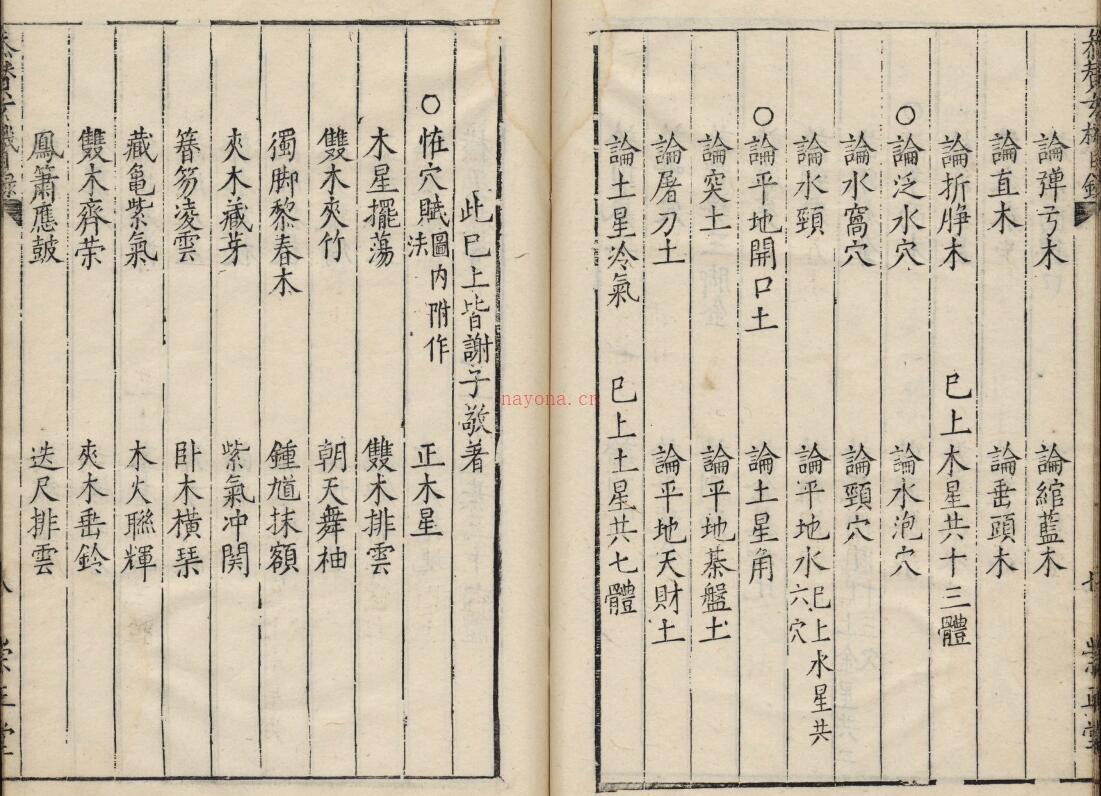 論彈弓木 論綰藍木
論直木 論垂頭木
論折脚木 已上木星共十三體
○論泛水穴 論水泡穴
論水窩穴 論頸穴
論水頸 論平地水已上水星共六穴
○論平地開口土 論土星角
論突土 論平地碁盤土
論屠刀土 論平地天財土
論土星冷氣 已上土星共七體
此已上皆謝子敬著
○怪穴賦圖內附作法 正木星
木星擺蕩 雙木排雲
雙木夾竹 朝天舞袖
獨脚黎春木 鍾馗抹額
夾木藏芽 紫氣冲関
簪笏凌雲 卧木橫琹
藏龜紫氣 木火聮輝
雙木齊荣 夾木垂鈴
鳳簫應皷 迭尺排雲
八
nayona.cn